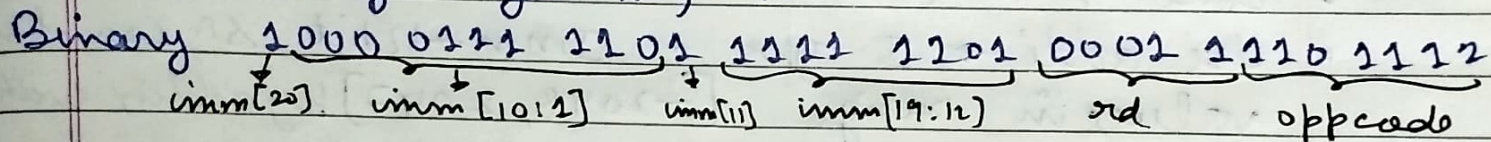 Binary 1000 0111 1101 1111 1101 0001 1110 1111
imm[20] imm[10:1] imm[11] imm[19:12] rd oppcode